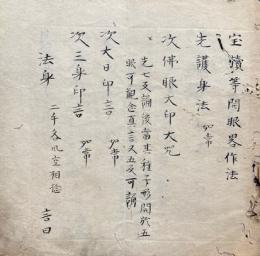 宝積等開眼略作法
先護身法 如常
次佛眼大印大咒
先七反誦後當其種子形開於五
眼可觀念真言又五反可誦
次大日印言 如常
次三身印言 如常
法身 二手各 空相捻 言曰